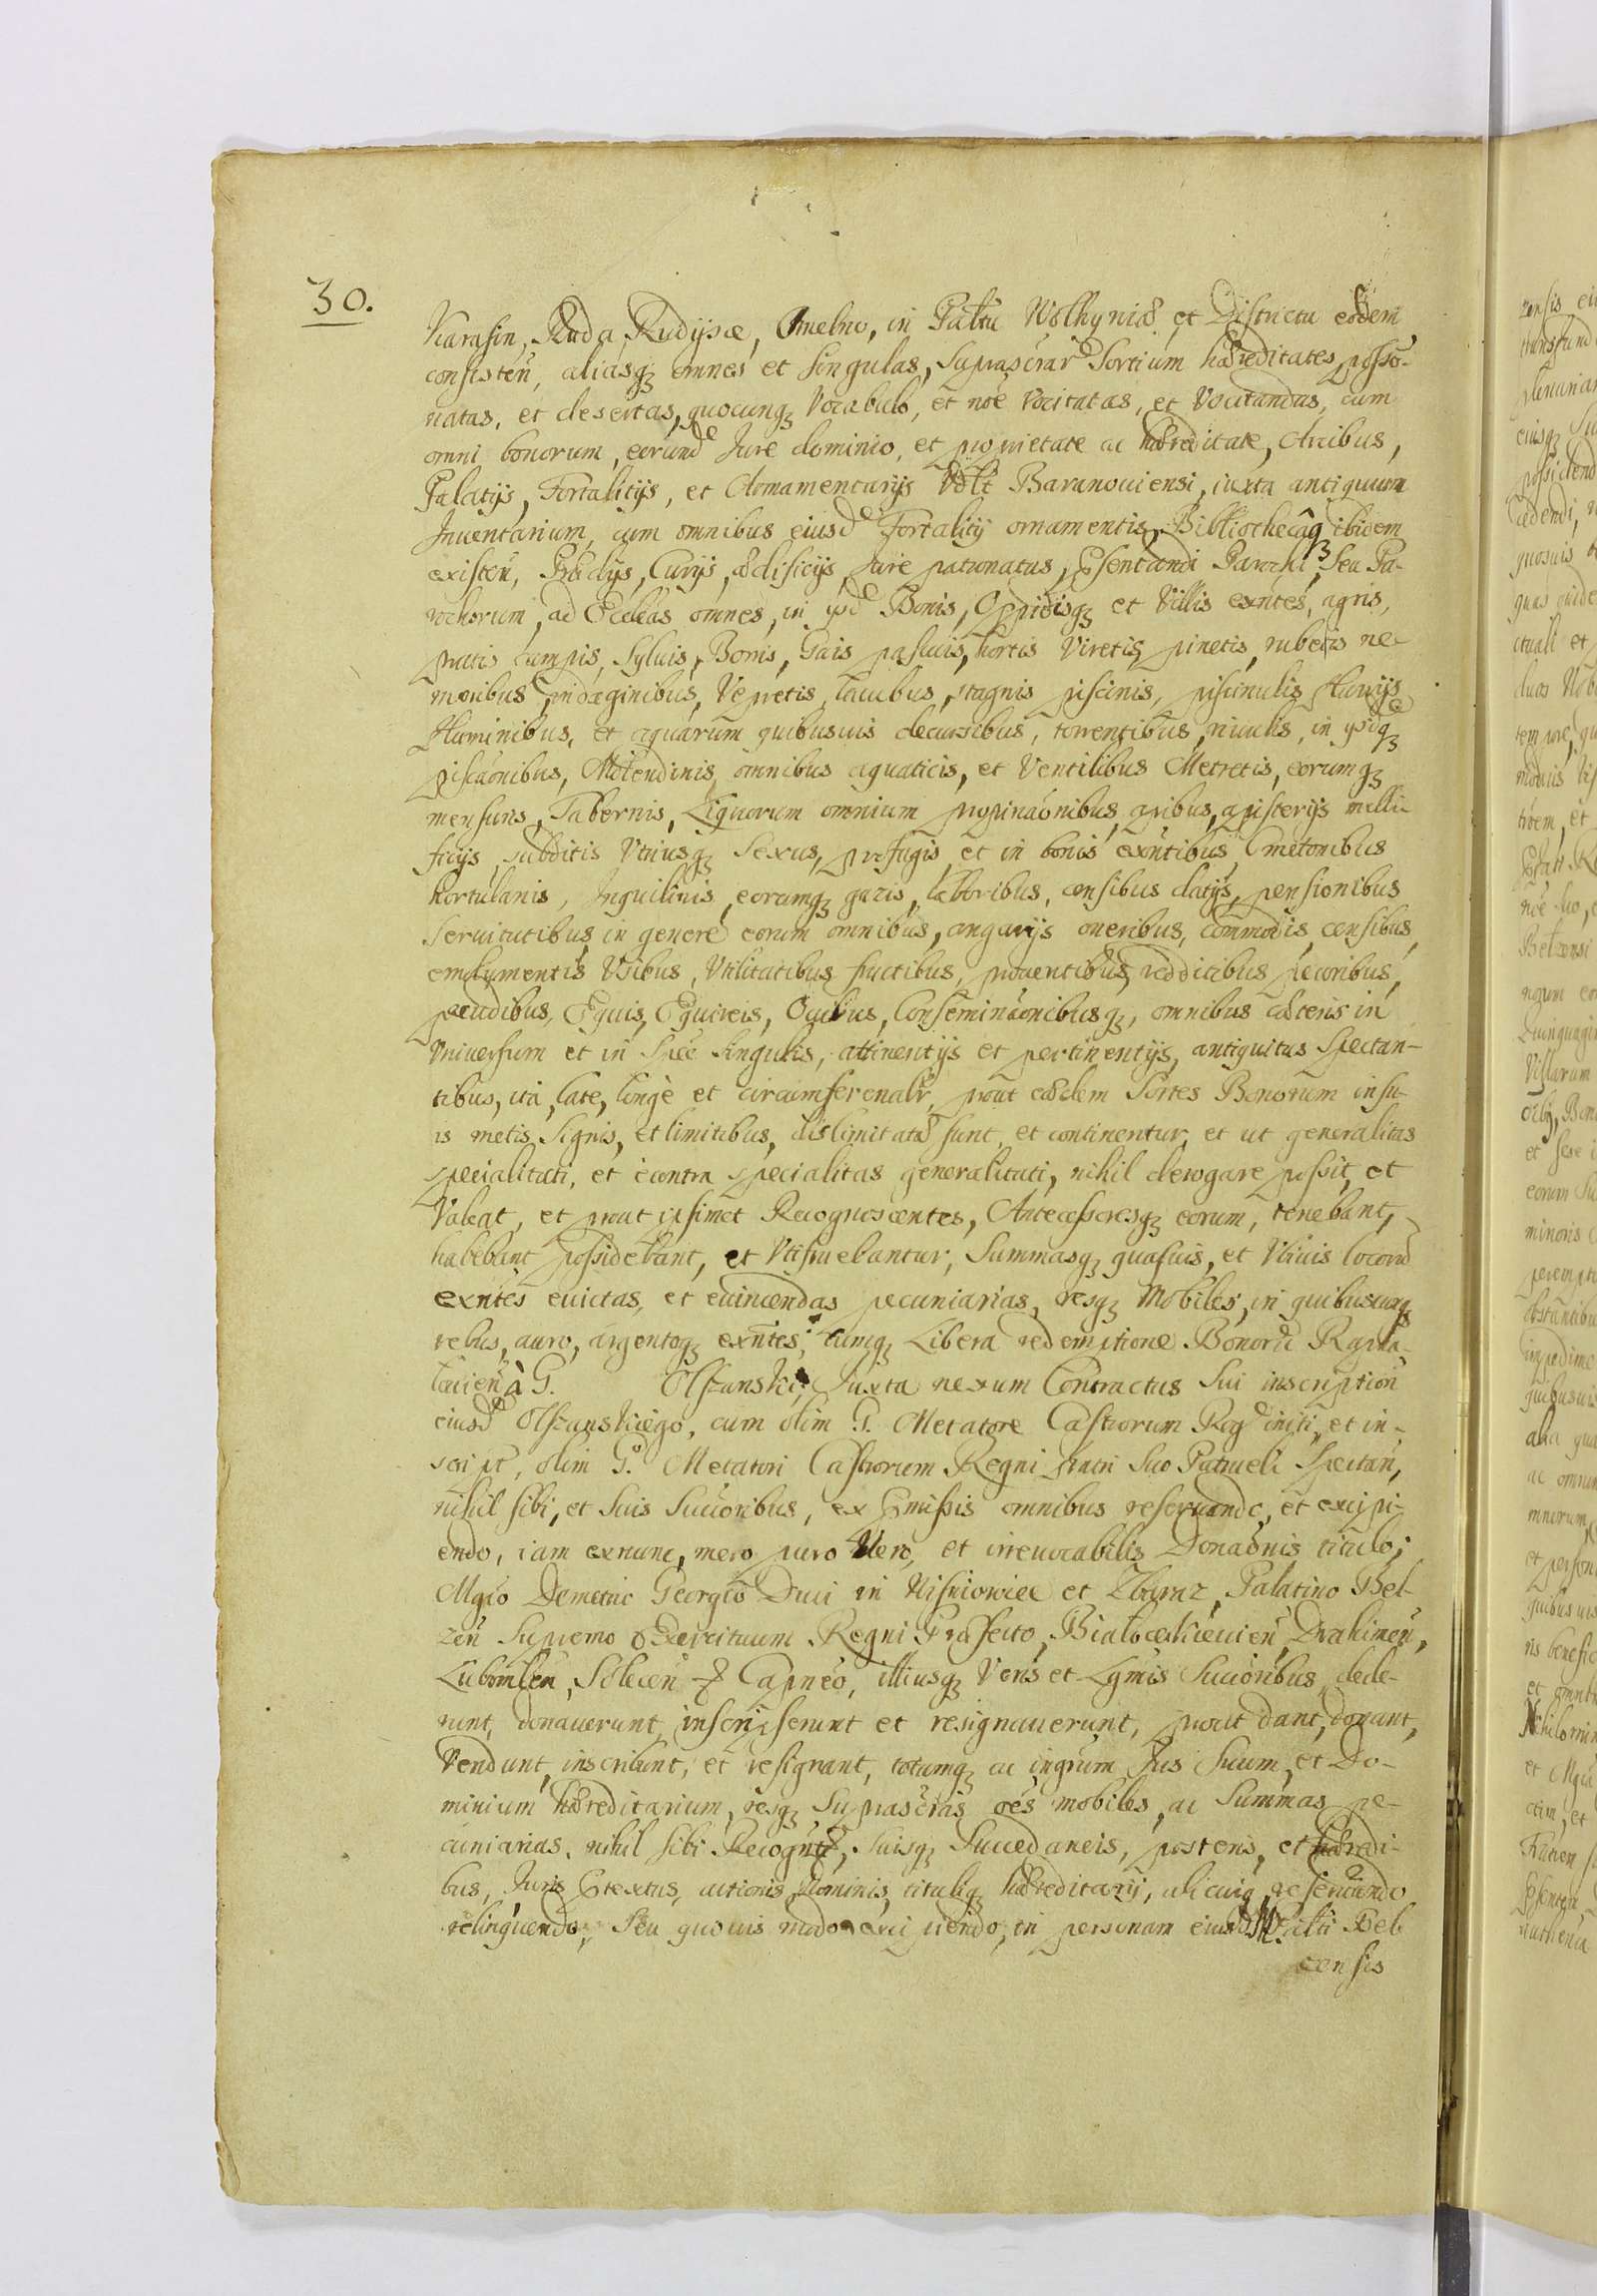 30.
Karasin, Ruda, Rudijsce, Omelno, in Pałtu Wolhyniæ et Districtu eodem
consisteñ, aliasqꝫ omnes et singulas, suprascrar̃ Sortium hæreditates, posses-
natas, et desertas, quocunqꝫ Vocabulo, et nõe vocitatas, et Vocitandas, cum
omni bonorum, eorund̃ Jure dominio, et proprietate ac hæreditate, Arcibus,
Palatijs, Fortalitijs, et Armamentarijs Baranoviensi, iuxta antiquum
Inventarium, cum omnibus eiusd̃ Fortalitij ornamentis, Bibliothecâqꝫ ibidem
existeñ, Prædijs, Curijs, ædificijs, Jure patronatus, Præsentandi Parochi, seu Pa-
rochorum, ad Ecclẽas omnes, in ysd̃ Bonis, Oppidisqꝫ et Villis exñtes, agris,
pratis campis, Sylvis, Borris, Gais pascuis, hortis Viretis, pinetis, rubetis ne-
moribus, indaginibus, Vepretis, lacubus, stagnis piscinis, piscinulis Fluvijs
Fluminibus, et aquarum quibusvis decursibus, torrentibus, rivulis, in ysdqꝫ
piscãonibus, Molendinis omnibus aquaticis, et Ventilibus Metretis, eorumqꝫ
mensuris, Tabernis, Liquorum omnium propinãonibus, apibus, apisterijs melli-
ficijs, subditis Utriusqꝫ Sexus, profugis et in bonis exñtibus Cmetonibus
hortulanis, Inquilinis, eorumqꝫ gazis, laboribus, censibus datijs, pensionibus
Servitutibus in genere eorum omnibus, angarijs oneribus, Commodis, censibus,
emolumentis Usibus, Utilitatibus fructibus, proventibus, redditibus pecoribus,
pecudibus, Equis, Equireis, Ovibus, Conseminãonibusqꝫ, omnibus cæteris in
Universum et in Spẽe singulis, attinentijs et pertinentijs, antiquitus Spectan-
tibus, ita, late, longè et circumferenalr̃, prout eædem Sortes Bonorum in su-
is metis, Signis, et limitibus, dislimitatæ sunt, et continentur, et ut generalitas
specialitati, et è contra specialitas generalitati, nihil derogare possit, et
Valeat, et prout ipsimet Recognoscentes, Antecessoresqꝫ eorum, tenebant,
habebant possidebant, et Utifruebantur, Summasqꝫ quasvis, et Ubivis locorũ
exñtes evictas, et evincendas pecuniarias, resqꝫ Mobiles, in quibuscunqꝫ
rebus, auro, argentoqꝫ exñtes, cumqꝫ Libera redemptione Bonorũ Rapha-
lovieñ à G. Olszanski, Juxta nexum Contractus Sui inscription̄
eiusd̃ Olszanskiego, cum olim G. Metatore Castrorum Reg̃ initi, et in-
script̃, olim G. Metatori Castrorum Regni fratri Suo Patrueli Spectañ,
nihil sibi, et Suis Succõribus, ex Præmissis omnibus reservando, et excipi-
endo, iam exnunc, mero puro Vero, et irrevocabilis Donãonis titulo,
Mg̃co Demetrio Georgio Duci in Wisniowiec et Zbaraz, Palatino Bel-
zeñ Supremo Exercituum Regni Præfecto, Bialocerkievieñ, Drahimeñ,
Lubomleñ, Soleceñ Capneo, illiusqꝫ Veris et Lgmis Succõribus, dede-
runt, donaverunt, inscripserunt et resignaverunt, prout dant, donant,
Vendunt, inscribunt, et resignant, totumqꝫ ac ingrum Jus Suum, et Do-
minium hæreditarium, resqꝫ Suprascras oẽs mobiles, ac Summas pe-
cuniarias, nihil sibi Recogntẽ, Suisqꝫ Succedaneis, posteris, et hæredi-
bus, Juris Prætextus, actionis Dominij, tituliqꝫ hæreditarij, alicuiꝗ reservando
relinquendo, Seu quovis modo excipiendo, in personam eiusd̃ M. Palti Bel
censis